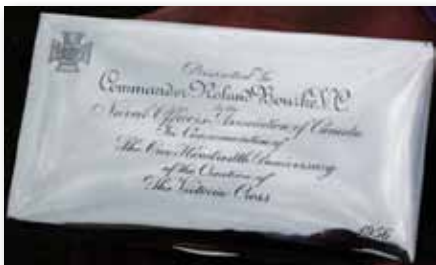 Presented to
Commander Roland Bourke V.C.
by the
Naval Officers Association of Canada
In Commemoration of
The One Hundredth Anniversary
of the Creation of
The Victoria Cross
1956